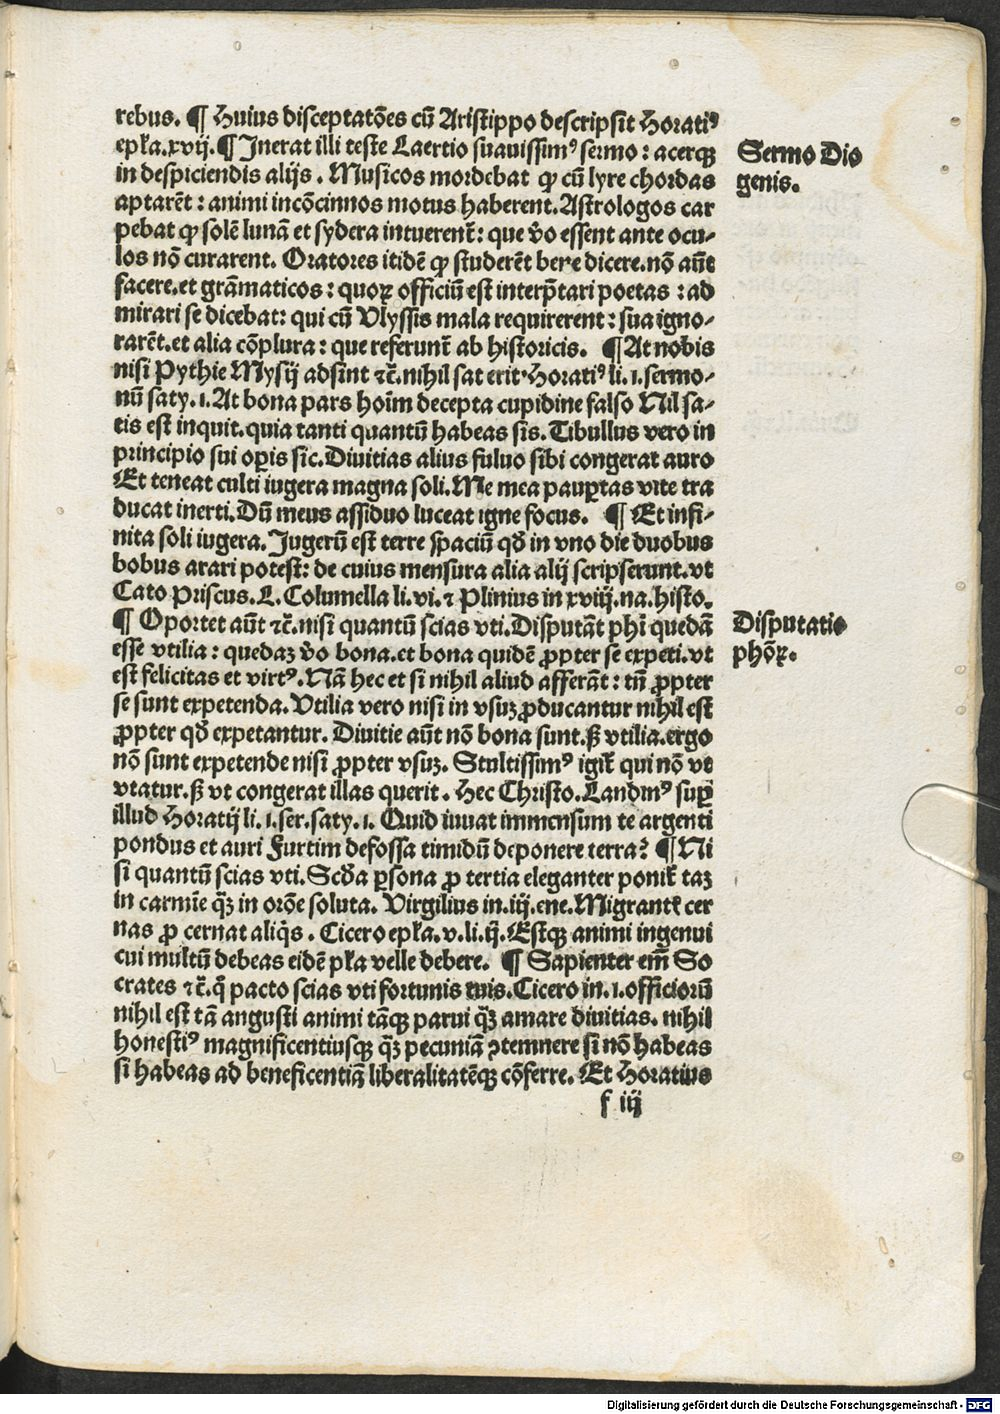 rebus. ¶ Huius disceptatões cũ Aristippo descripsit Horatiꝰ
epl̃a.xvij. ¶ Inerat illi teste Laertio suauissimꝰ sermo : acerqꝫ
in despiciendis alijs . Musicos mordebat ꝙ cũ lyre chordas
aptarẽt : animi incõcinnos motus haberent. Astrologos car
pebat ꝙ solẽ lunã et sydera intuerent᷒: que v̉o essent ante ocu-
los nõ curarent. Oratores itidẽ ꝙ studerẽt bene dicere.nõ aũt
facere.et grãmaticos : quoꝝ officiũ est interp̃tari poetas : ad
mirari se dicebat: qui cũ Vlyssis mala requirerent : sua igno-
rarẽt.et alia cõplura : que referunt᷒ ab historicis. ¶ At nobis
nisi Pythie Mysij adsint ⁊c̃.nihil sat erit.Horatiꝰ li.1.sermo-
nũ saty.1.At bona pars hoĩm decepta cupidine falso Nil sa-
tis est inquit.quia tanti quantũ habeas sis. Tibullus vero in
principio sui oꝑis sic.Diuitias alius fuluo sibi congerat auro
Et teneat culti iugera magna soli. Me mea pauꝑtas vite tra
ducat inerti. Dũ meus assiduo luceat igne focus. ¶ Et infi-
nita soli iugera. Jugerũ est terre spaciũ qđ in vno die duobus
bobus arari potest: de cuius mensura alia alij scripserunt.vt
Cato Priscus. L. Columella li.vi. ⁊ Plinius in xviij.na.histo.
¶ Oportet aũt ⁊c̃.nisi quantũ scias vti. Disputãt phĩ quedã
esse vtilia : quedaꝫ v̉o bona.et bona quidẽ ꝓpter se expeti.vt
est felicitas et virtꝰ. Nã hec et si nihil aliud afferãt : tñ ꝓpter
se sunt expetenda. Vtilia vero nisi in vsuꝫ ꝓducantur nihil est
ꝓpter qđ expetantur. Diuitie aũt nõ bona sunt.ꞩ vtilia.ergo
nõ sunt expetende nisi ꝓpter vsuꝫ. Stultissimꝰ igit᷒ qui nõ vt
vtatur.ꞩ vt congerat illas querit . Hec Christo. Landinꝰ suꝑ
illud Horatij li.1.ser.saty.1. Quid iuuat immensum te argenti
pondus et auri Furtim defossa timidũ deponere terra? ¶ Ni
si quantũ scias vti. Scđa ꝑsona ꝓ tertia eleganter ponit᷒ taꝫ
in carmĩe q̃ꝫ in orõe soluta. Virgilius in.iiij.ene. Migrantẽ cer
nas ꝓ cernat aliq̃s . Cicero epl̃a.v.li.ij. Estqꝫ animi ingenui
cui multũ debeas eidẽ pl̃a velle debere. ¶ Sapienter em̃ So
crates ⁊c̃.q̃ pacto scias vti fortunis tuis. Cicero in.1.officiorũ
nihil est tã angusti animi tãqꝫ parui q̃ꝫ amare diuitias. nihil
honestiꝰ magnificentiusqꝫ q̃ꝫ pecuniã ꝯtemnere si nõ habeas
si habeas ad beneficentiã liberalitatẽqꝫ cõferre. Et Horatius
f iij
Sermo Dio
genis.
Disputatio
phõꝝ.
Digitalisierung gefördert durch die Deutsche Forschungsgemeinschaft - DFG